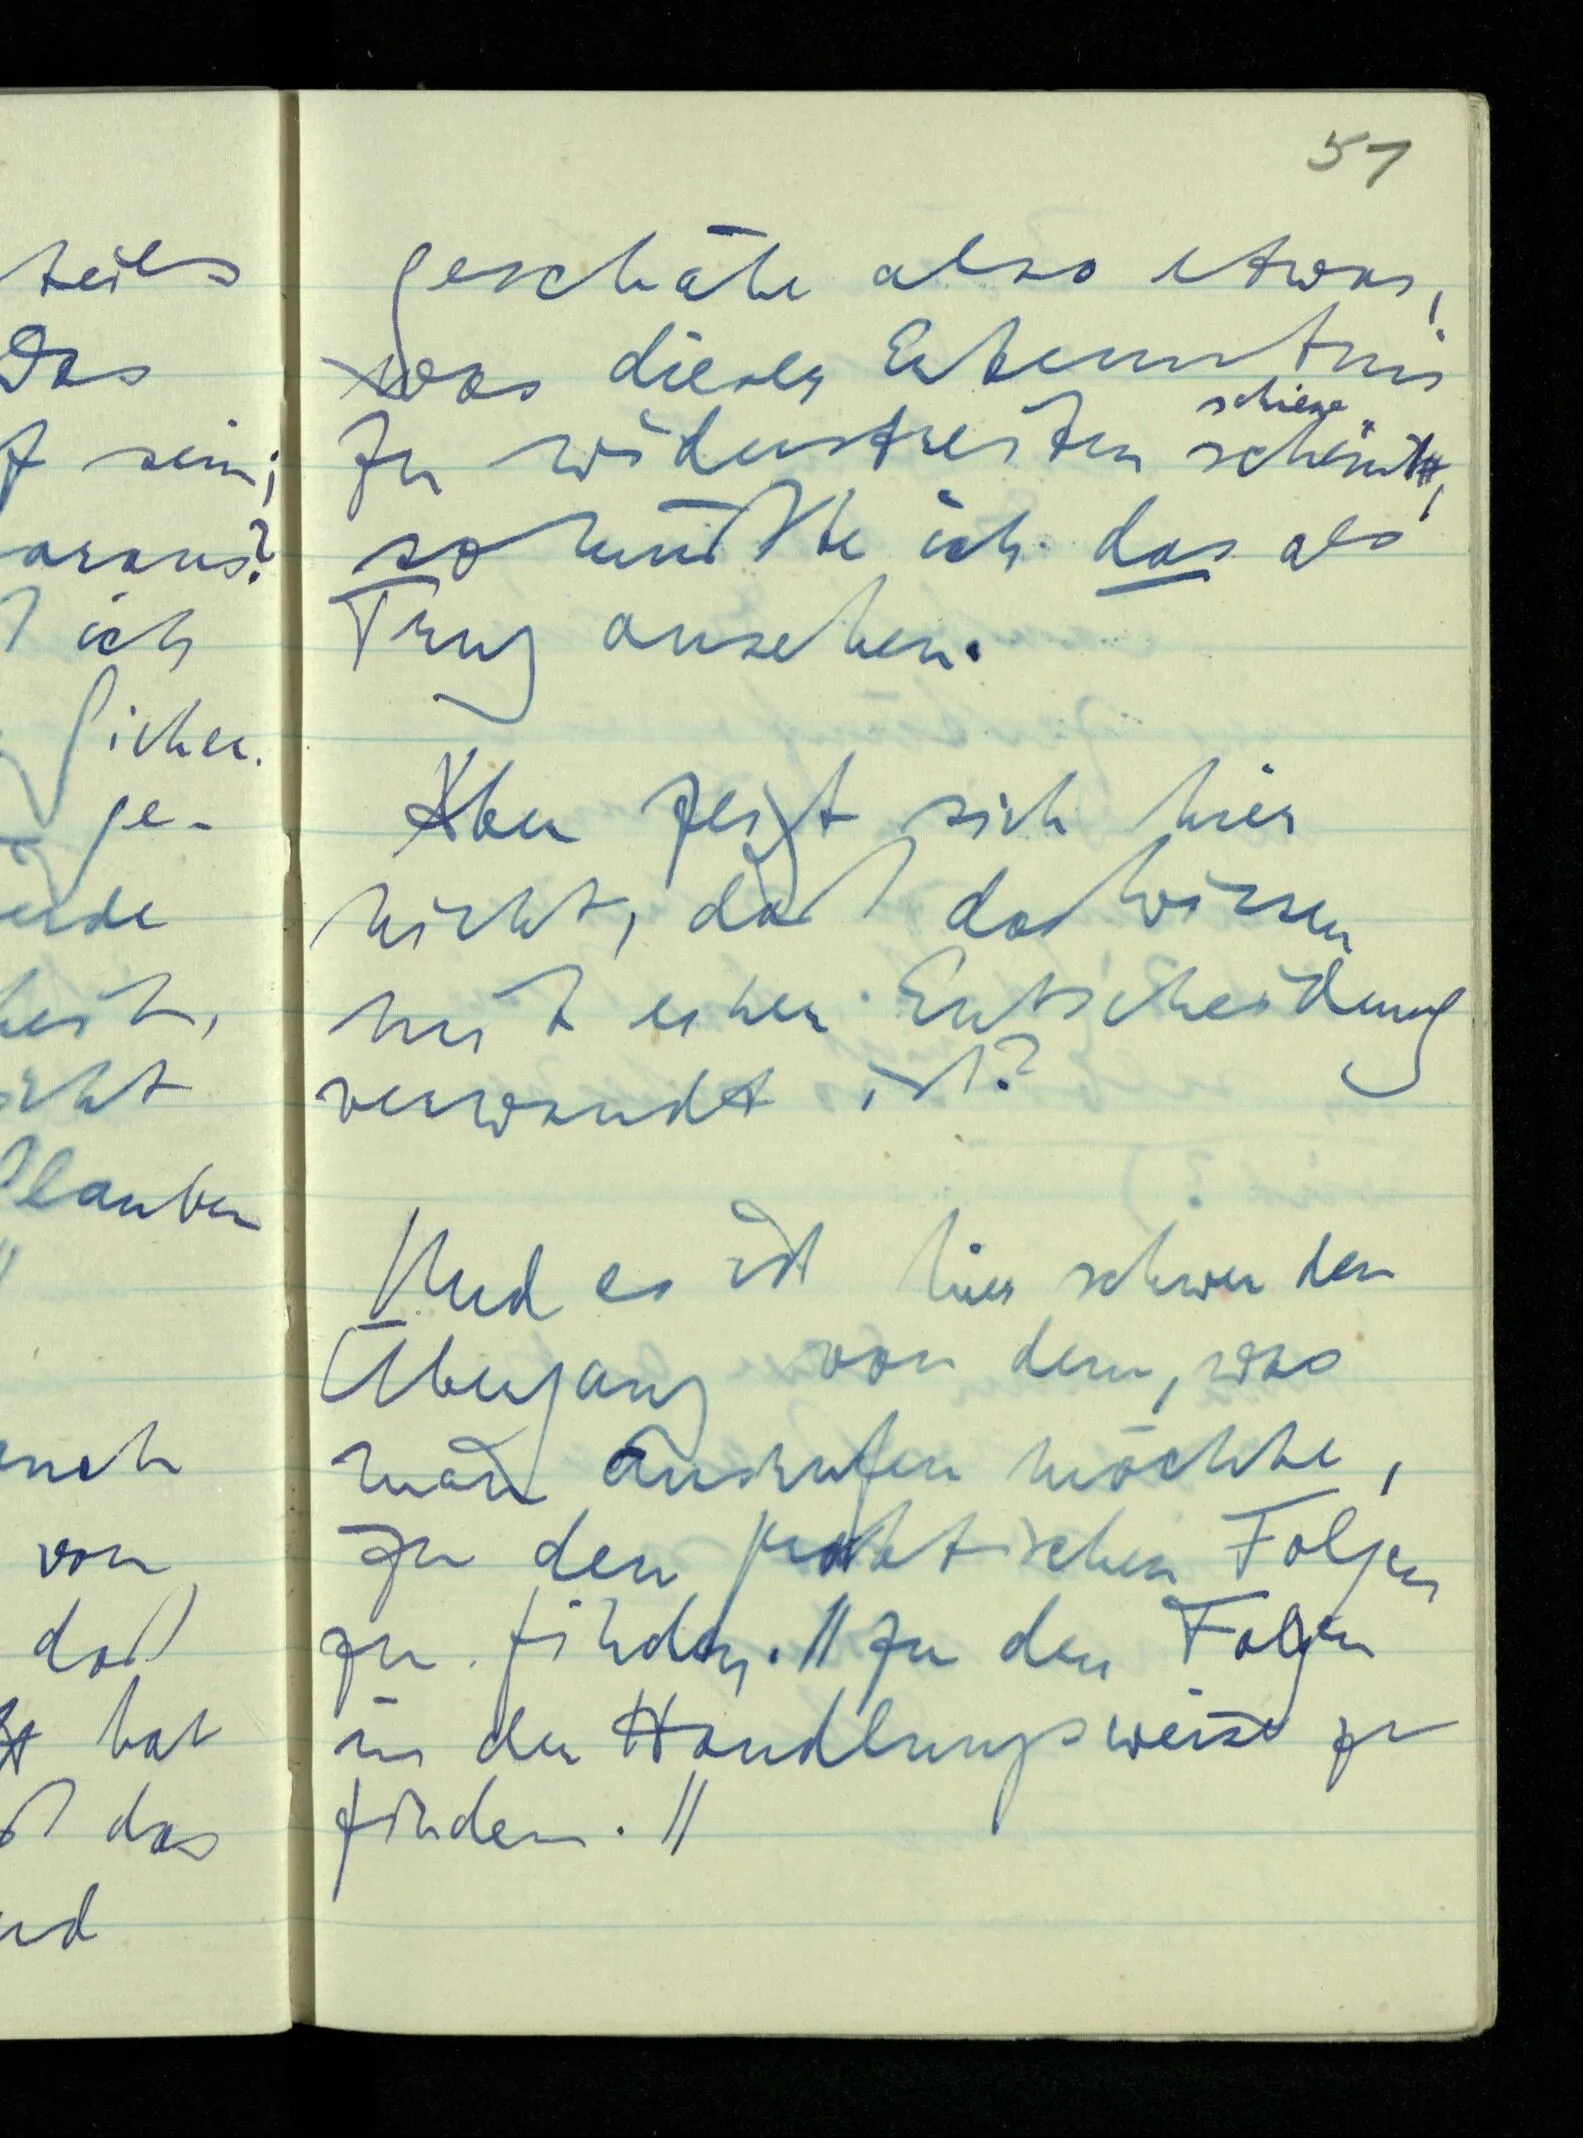 teils
Das
sein;
araus?
ich
sicher.
ge-
heit,
Glauben
von
daß
hat
das
51
geschähe also etwas,
was dieser Erkenntnis
schiene
zu widerstreiten scheint,
so müßte ich das als
Trug ansehen.
Aber zeigt sich hier
nicht, daß das Wissen
mit einer Entscheidung
verwandt ist?
Und es ist hier schwer den
Übergang von dem, was
man ausrufen möchte,
zu den praktischen Folgen
zu finden. // zu den Folgen
in der Handlungsweise zu
finden. //